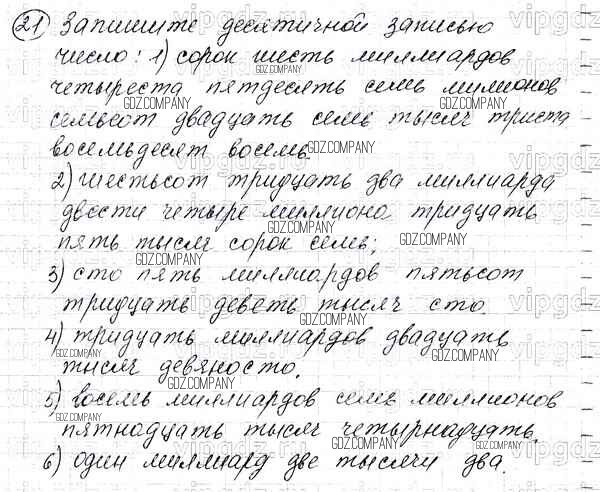 21 Запишите десятичной записью
число: 1) сорок шесть миллиардов
четыреста пятдесять семь милионов
семьсот двадцать семь тысяч триста
восемьдесят восемь.
2) шестьсот тридцать два миллиарда
двести четыре миллиона тридцать
пять тысяч сорок семь;
3) сто пять миллиардов пятьсот
тридцать деветь тысяч сто.
4) тридцать миллиардов двадцать
тысяч девяносто.
5) восемь миллиардов семь миллионов
пятнадцать тысяч четырнадцать.
6) один миллиард две тысячи два.
GDZ.COMPANY
vipgdz.ru